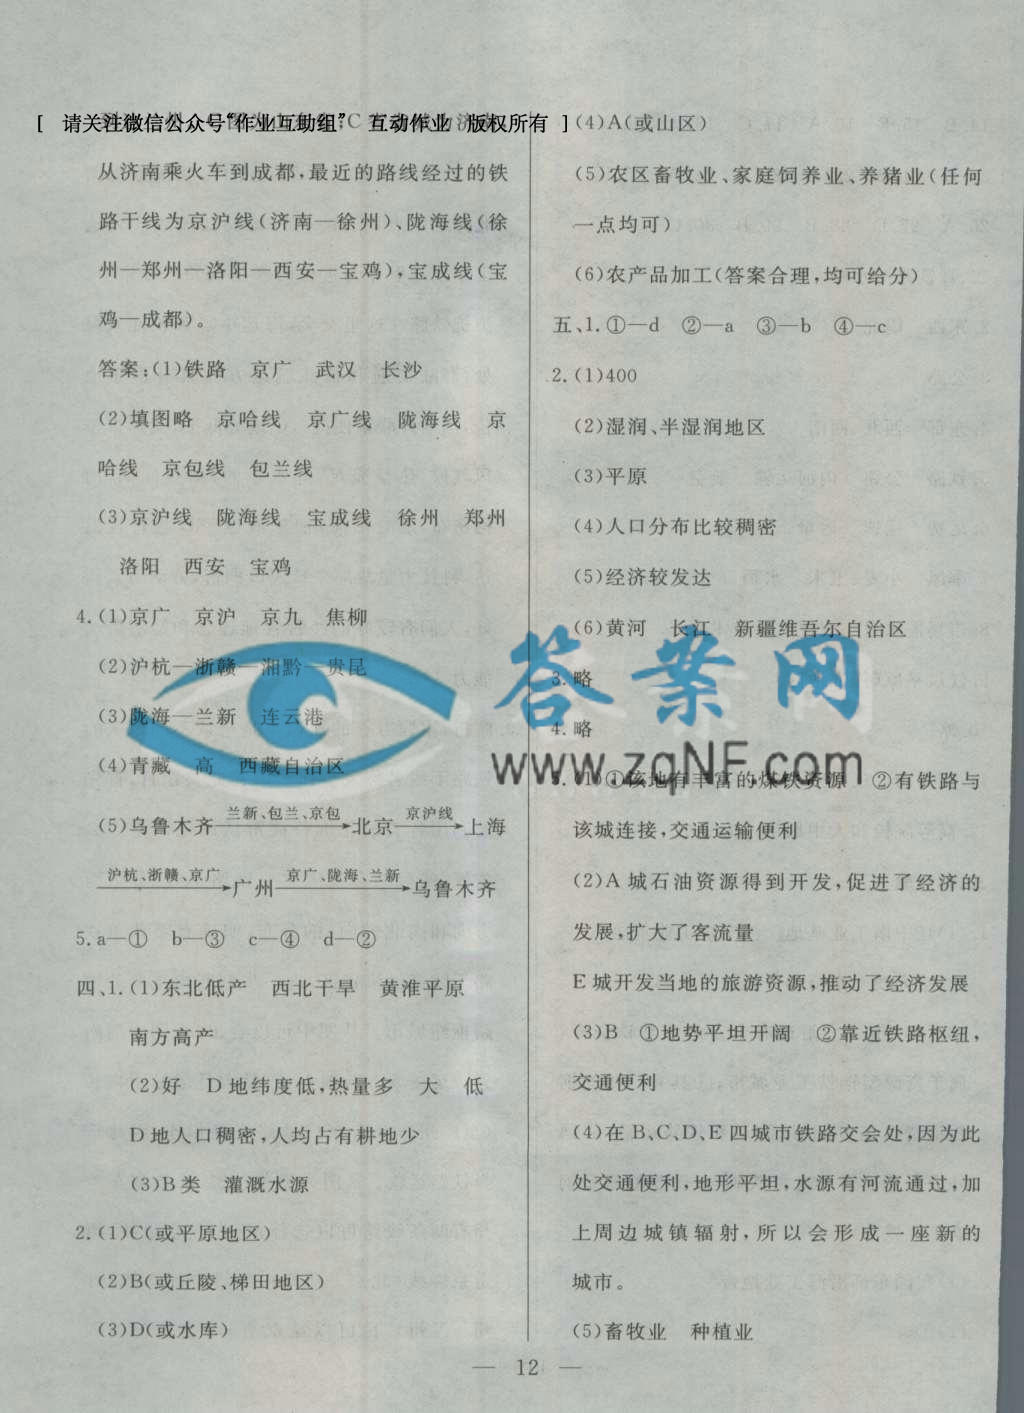 [ 请关注微信公众号“作业互助组” 互动作业 版权所有 ]
从济南乘火车到成都,最近的路线经过的铁
路干线为京沪线(济南—徐州)、陇海线(徐
州—郑州—洛阳—西安—宝鸡),宝成线(宝
鸡—成都)。
答案:(1)铁路 京广 武汉 长沙
(2)填图略 京哈线 京广线 陇海线 京
哈线 京包线 包兰线
(3)京沪线 陇海线 宝成线 徐州 郑州
洛阳 西安 宝鸡
4.(1)京广 京沪 京九 焦柳
(2)沪杭—浙赣—湘黔—贵昆
(3)陇海—兰新 连云港
(4)青藏 高 西藏自治区
(5)乌鲁木齐 兰新、包兰、京包→ 北京 京沪线→ 上海
沪杭、浙赣、京广→ 广州 京广、陇海、兰新→ 乌鲁木齐
5.a—① b—③ c—④ d—②
四、1.(1)东北低产 西北干旱 黄淮平原
南方高产
(2)好 D地纬度低,热量多 大 低
D地人口稠密,人均占有耕地少
(3)B类 灌溉水源
2.(1)C(或平原地区)
(2)B(或丘陵、梯田地区)
(3)D(或水库)
(4)A(或山区)
(5)农区畜牧业、家庭饲养业、养猪业(任何
一点均可)
(6)农产品加工(答案合理,均可给分)
五、1.①—d ②—a ③—b ④—c
2.(1)400
(2)湿润、半湿润地区
(3)平原
(4)人口分布比较稠密
(5)经济较发达
(6)黄河 长江 新疆维吾尔自治区
3.略
4.略
5.(1)①该地有丰富的煤铁资源 ②有铁路与
该城连接,交通运输便利
(2)A城石油资源得到开发,促进了经济的
发展,扩大了客流量
E城开发当地的旅游资源,推动了经济发展
(3)B ①地势平坦开阔 ②靠近铁路枢纽,
交通便利
(4)在B、C、D、E四城市铁路交会处,因为此
处交通便利,地形平坦,水源有河流通过,加
上周边城镇辐射,所以会形成一座新的
城市。
(5)畜牧业 种植业
答案网
www.zqNF.com
— 12 —